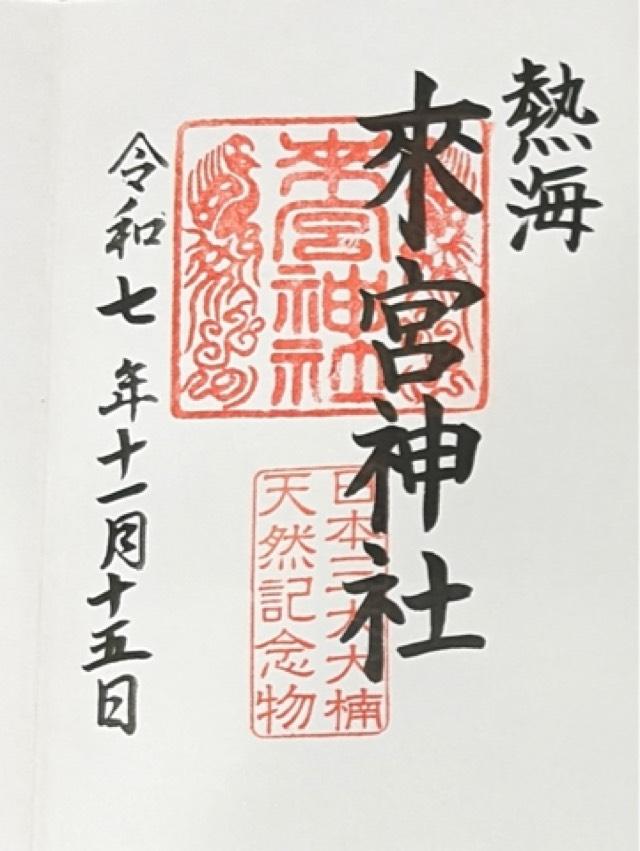 熱海
來宮神社
來宮神社
日本三大大楠
天然記念物
令和七年十一月十五日